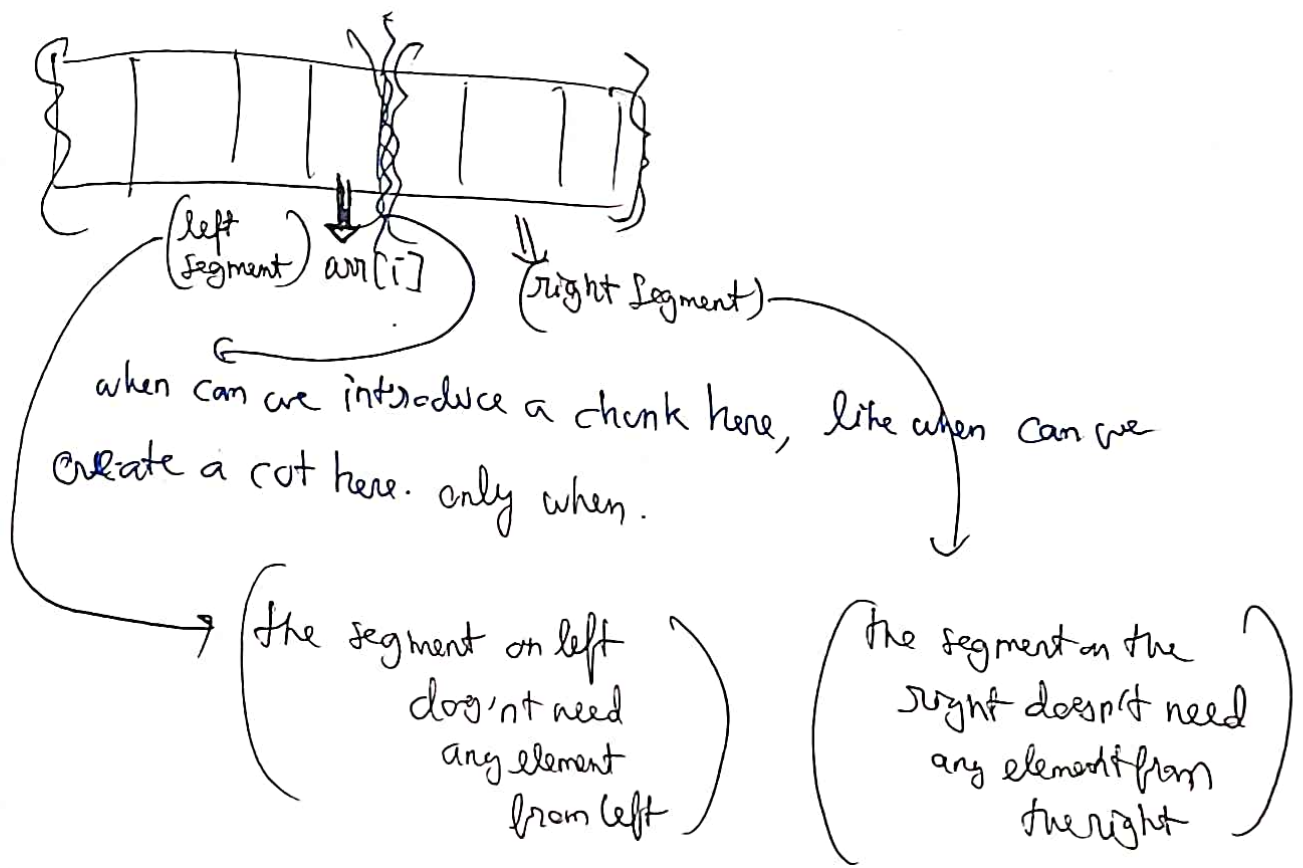 (left
segment) arr[i]
(right segment)
when can we introduce a chunk here, like when can we
create a cut here. only when.
(the segment on left
does'nt need
any element
from left)
(the segment on the
right doesn't need
any element from
the right)